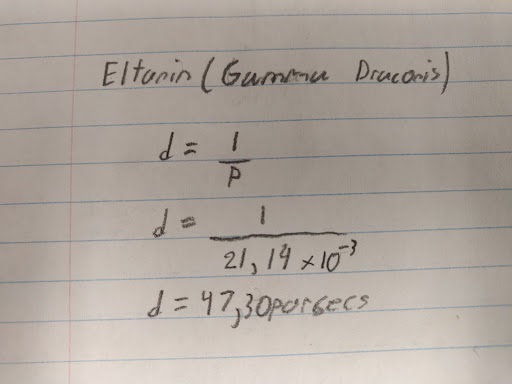 Eltanin (Gamma Draconis)
d = 1/p
d = 1/21,14 × 10⁻³
d = 47,30 parsecs